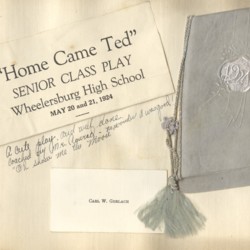 "Home Came Ted"
SENIOR CLASS PLAY
Wheelersburg High School
MAY 20 and 21, 1924
A cute play, and well done.
Coached by Mr.
"Oh show me the Moose"
CARL W. GERLACH